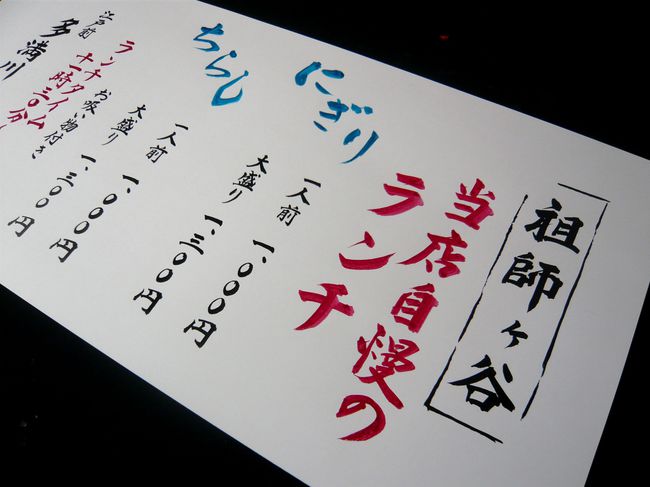 祖師ヶ谷
当店自慢の
ランチ
にぎり
一人前 一、〇〇〇円
大盛り 一、三〇〇円
ちらし
一人前 一、〇〇〇円
大盛り 一、三〇〇円
お吸い物付き
ランチタイム
十一時三〇分
江戸前
多満川